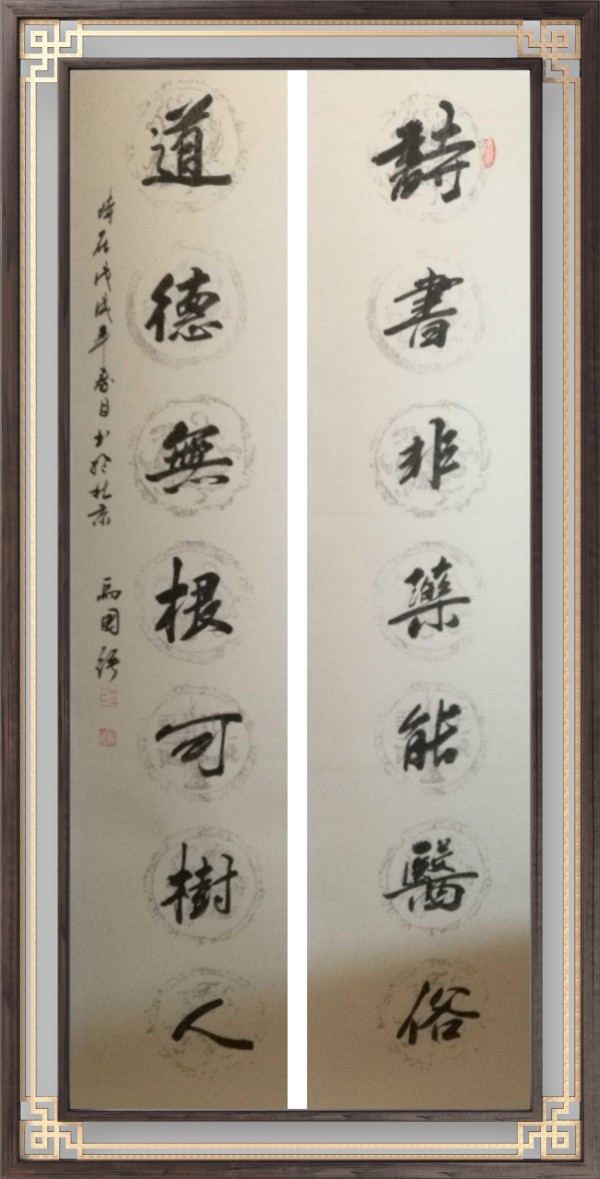 詩書非藥能醫俗
道德無根可樹人
時在戊戌年春日書於北京
馬國